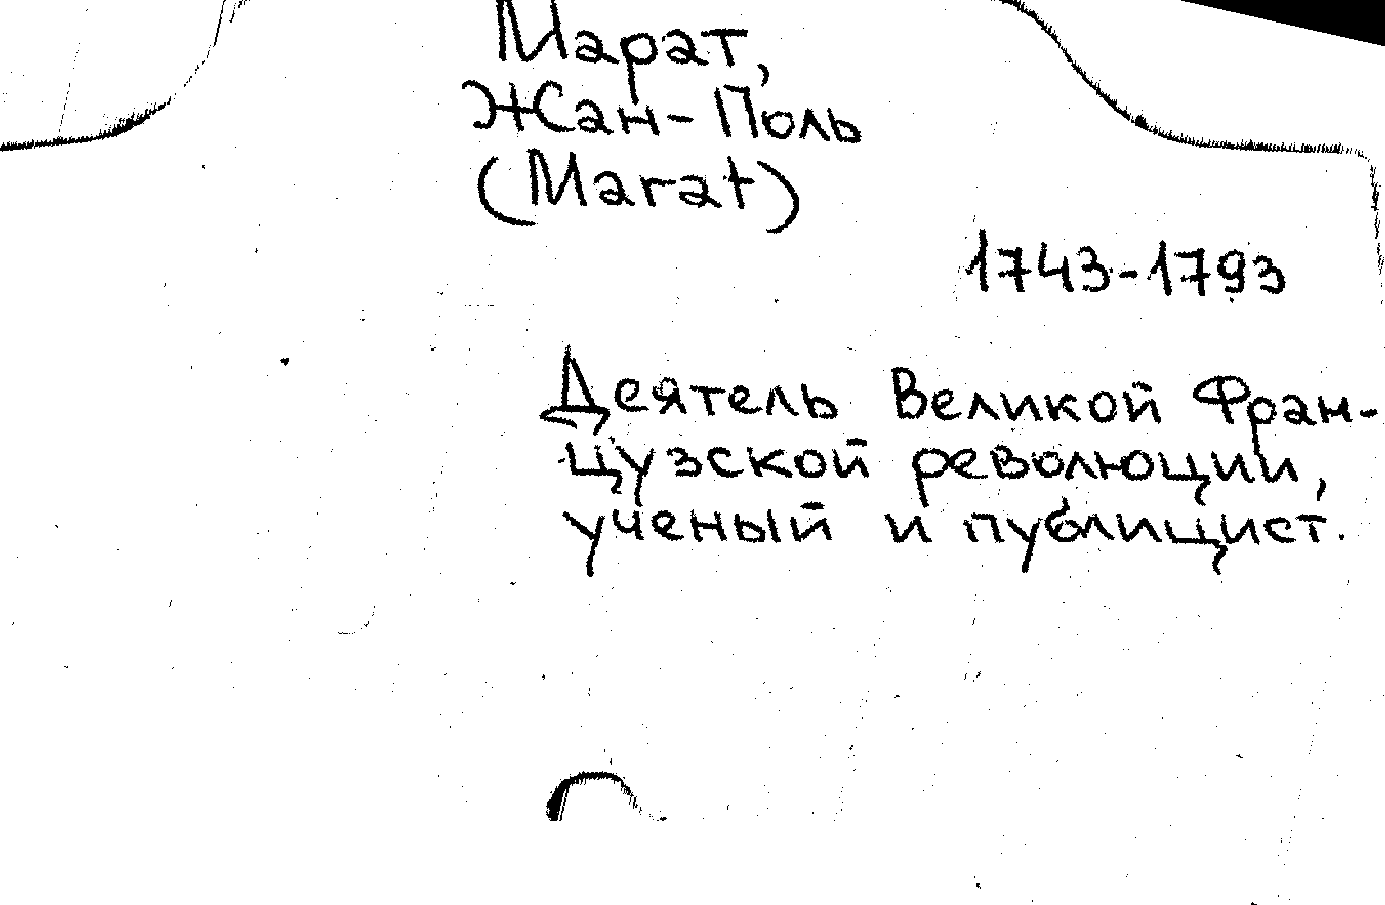 Марат,
Жан-Поль
(Marat)
1743-1793
Деятель Великой Фран-
цузской революции,
ученый и публицист.